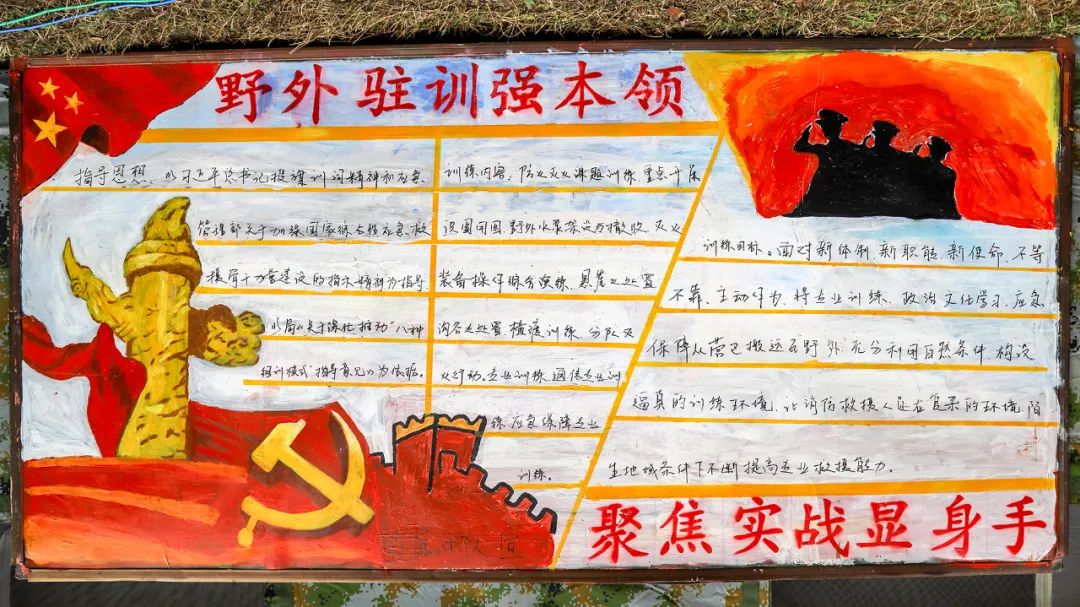 野外驻训强本领
指导思想 以习近平总书记授旗训词精神和应急
管理部关于加强国家综合性应急救
援骨干力量建设的指示精神为指导
以局《关于深化推动"八种
组训模式"指导意见》为依据。
训练内容 防火灭火课题训练 重点开展
识图用图 野外水泵架设与撤收 灭火
装备操作综合演练 悬崖火处置
沟谷火处置 植被训练 分队灭
火行动。专业训练 通信专业训
练 应急保障专业
训练。
训练目标。面对新体制 新职能 新使命 不等
不靠、主动作为、将专业训练、政治文化学习、应急
保障从营区搬运至野外 充分利用自然条件 构设
逼真的训练环境 让消防救援人员在复杂的环境 陌
生地域条件下不断提高专业救援能力。
聚焦实战显身手